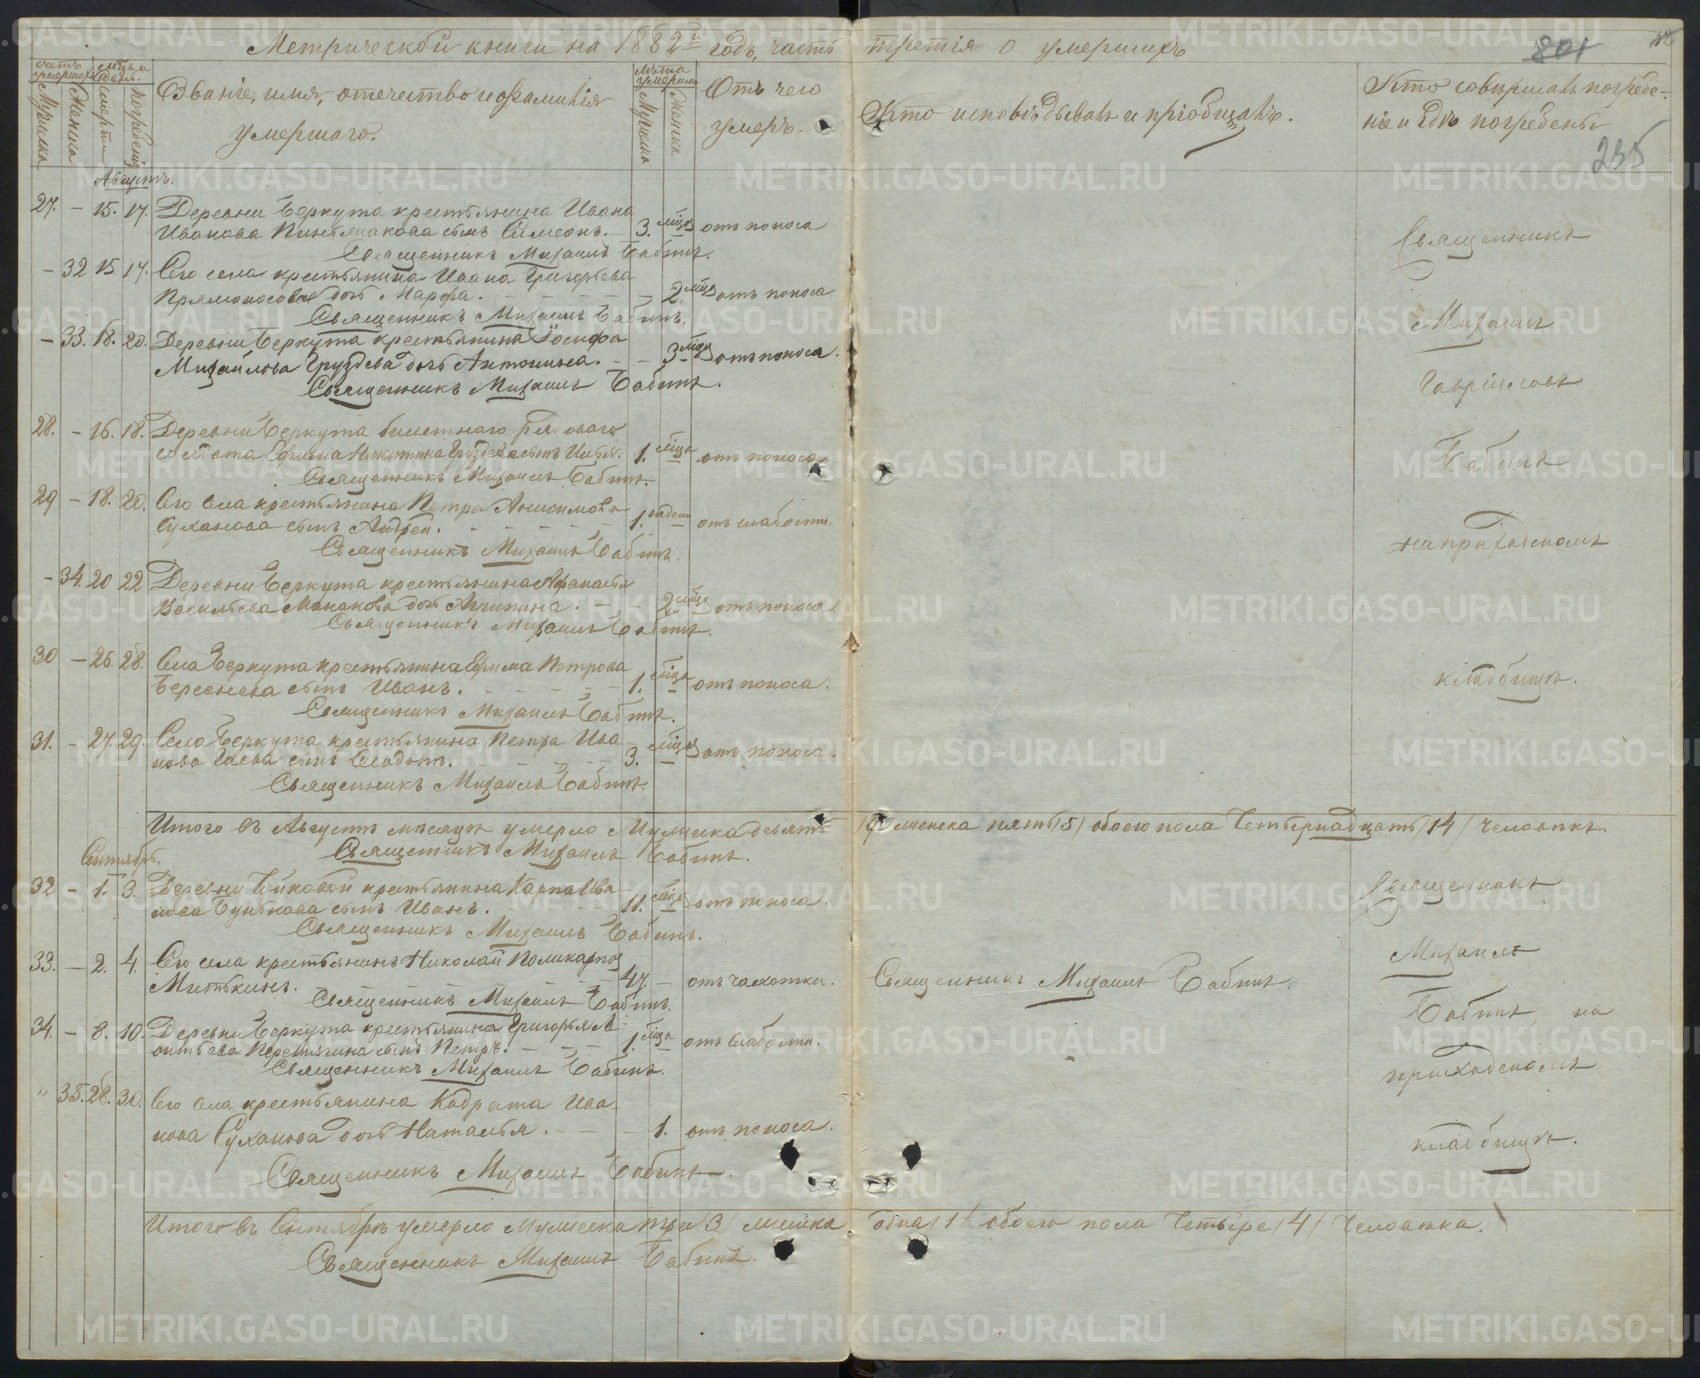 Метрической книги на 1882й годъ, часть третія о умершихъ
801
235
счетъ умершихъ
Мужска
Женска
Мца и день
смерти
погребенія
Званіе, имя, отечество и фамилія
умершаго.
Лѣта умершихъ
Мужска
Женска
Отъ чего
умеръ.
Кто исповѣдывалъ и пріобщалъ.
Кто совершалъ погребе-
ніе и гдѣ погребены
Августъ.
27. – 15. 17. Деревни Беркута крестьянина Ивана
Иванова сынъ Симеонъ. 3. мца отъ поноса
Священникъ Михаилъ Бабинъ.
– 32 15 17. Сего села крестьянина Ивана Григорьева
дочь Марфа. 2. мца отъ поноса
Священникъ Михаилъ Бабинъ.
– 33. 18. 20. Деревни Беркута крестьянина Іосифа
Михайлова Груздева дочь Антонина. 3 мца отъ поноса.
Священникъ Михаилъ Бабинъ.
28. – 16. 18. Деревни Беркута билетнаго рядоваго
Никитина Груздева сынъ 1. мца отъ поноса
Священникъ Михаилъ Бабинъ.
29 – 18. 20. Сего села крестьянина Петра Анисимова
Суханова сынъ Андрей. 1. отъ слабости.
Священникъ Михаилъ Бабинъ.
– 34. 20 22 Деревни Беркута крестьянина Афанасія
Васильева дочь Агрипина. 2 мца отъ поноса
Священникъ Михаилъ Бабинъ.
30 – 26. 28. Села Беркута крестьянина Петрова
Береснева сынъ Иванъ. 1. мца отъ поноса.
Священникъ Михаилъ Бабинъ.
31. – 27. 29. Села Беркута крестьянина Петра Ива
нова сынъ 3. мца отъ поноса.
Священникъ Михаилъ Бабинъ.
Итого въ Августѣ мѣсяцѣ умерло Мужеска девять /9/ женска пять /5/ обоего пола Четырнадцать /14/ человѣкъ.
Священникъ Михаилъ Бабинъ.
Сентябрь.
32 – 1. 3. Деревни крестьянина Карпа Ива
нова сынъ Иванъ. 11. мца отъ поноса.
Священникъ Михаилъ Бабинъ.
33. – 2. 4. Сего села крестьянинъ Николай Поликарповъ
Митькинъ. 47. – отъ чахотки. Священникъ Михаилъ Бабинъ.
Священникъ Михаилъ Бабинъ.
34. – 8. 10. Деревни Беркута крестьянина Григорья Ле
онтьева сынъ Петръ. 1. мца отъ слабости.
Священникъ Михаилъ Бабинъ.
" 35. 28. 30. Сего села крестьянина Кодрата Ива
нова Суханова дочь Наталья. 1. отъ поноса.
Священникъ Михаилъ Бабинъ.
Итого въ Сентябрѣ умерло Мужеска три /3/ женска одна /1/ обоего пола Четыре /4/ Человѣка.
Священникъ Михаилъ Бабинъ.
Священникъ
Михаилъ
Гавріиловъ
Бабинъ
на приходскомъ
кладбищѣ.
Священникъ
Михаилъ
Бабинъ на
приходскомъ
кладбищѣ.
METRIKI.GASO-URAL.RU